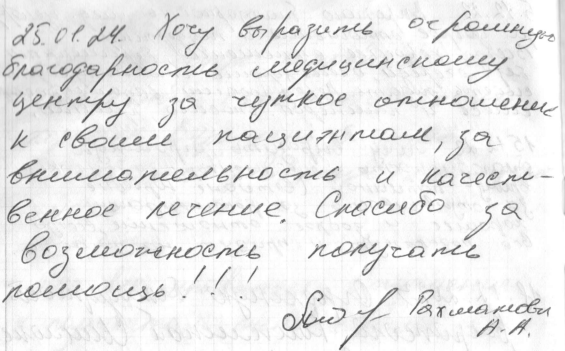 25.01.24. Хочу выразить огромную
благодарность медицинскому
центру за чуткое отношение
к своим пациентам, за
внимательность и качест-
венное лечение. Спасибо за
возможность получать
помощь!!!
А.А.